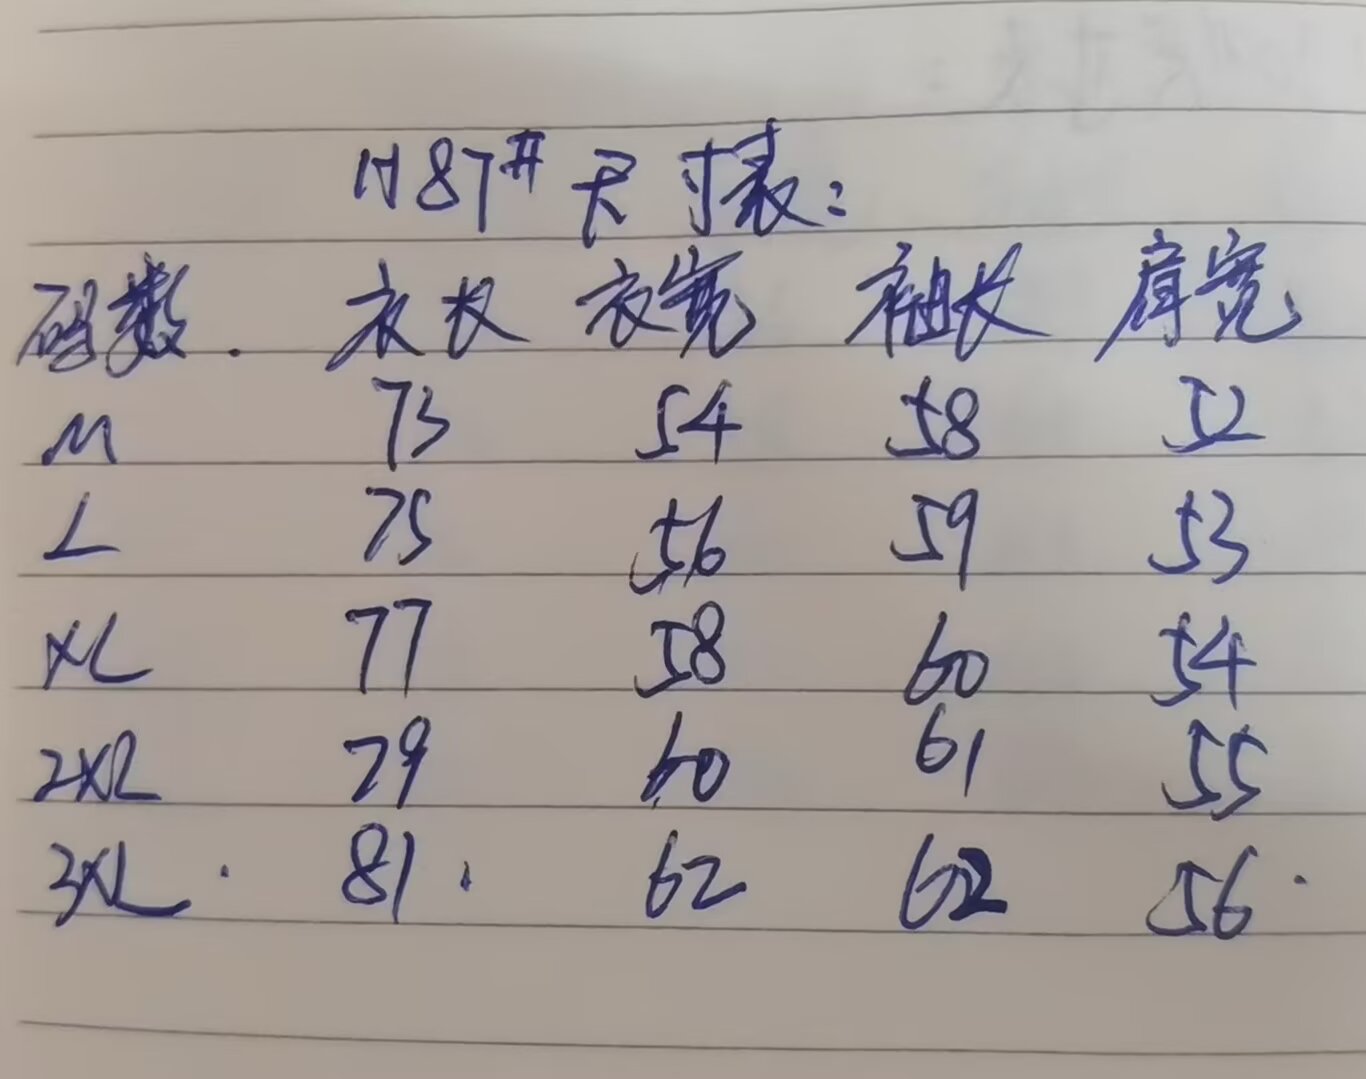 H87# 尺寸表:
码数. 衣长 衣宽 袖长 肩宽
M 73 54 58 52
L 75 56 59 53
XL 77 58 60 54
2XL 79 60 61 55
3XL. 81. 62 62 56.